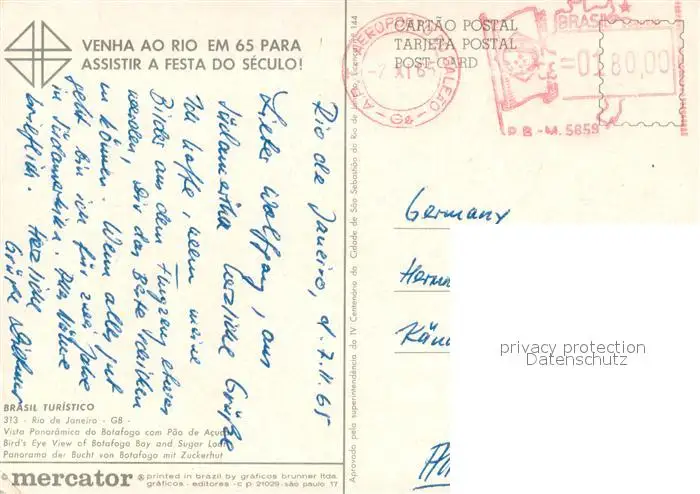 VENHA AO RIO EM 65 PARA
ASSISTIR A FESTA DO SÉCULO!
Rio de Janeiro, d. 7.11.65
Liebe Wolfgang, aus
Südamerika herzliche Grüße
Ich hoffe, wenn meine
Bilder aus dem Flugzeug etwas
werden, Dir das Beste
zu können. Wenn alles gut
geht bin ich für zwei Jahre
in Südamerika. Alles Nähere
brieflich. Herzliche
Grüße
BRASIL TURÍSTICO
313 - Rio de Janeiro - GB -
Vista Panorâmica do Botafogo com Pão de Açuc
Bird's Eye View of Botafogo Bay and Sugar Loaf
Panorama der Bucht von Botafogo mit Zuckerhut
mercator
printed in brazil by gráficos brunner ltda.
gráficos - editores - c p 21029 - são paulo 17
Aprovado pela superintendência do IV Centenário da Cidade de São Sebastião do Rio de Janeiro, Licença nº 144
CARTÃO POSTAL
TARJETA POSTAL
POST CARD
-7 XI 65
GB
BRASIL
=0180,00
P B - M. 5659
Germany
Herm
privacy protection
Datenschutz